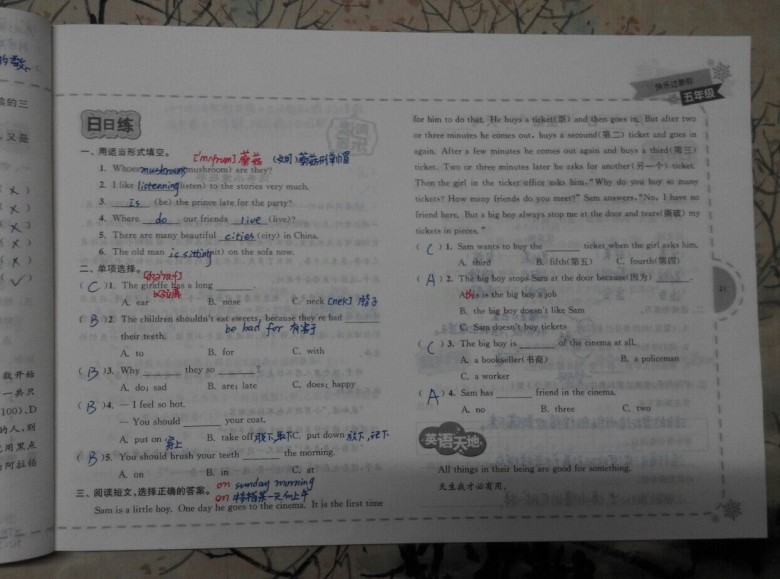 快乐过暑假
五年级
日日练
一、用适当形式填空。
蘑菇
1. Whose mushrooms (mushroom) are they?
2. I like listenning (listen) to the stories very much.
3. Is (be) the prince late for the party?
4. Where do our friends live (live)?
5. There are many beautiful cities (city) in China.
6. The old man is sitting (sit) on the sofa now.
二、单项选择。
( C )1. The giraffe has a long
长颈鹿
A. ear B. nose C. neck [nek] 脖子
( B )2. The children shouldn't eat sweets, because they're bad
their teeth. be bad for 有害于
A. to B. for C. with
( B )3. Why they so ?
A. do; sad B. are; late C. does; happy
( B )4. — I feel so hot.
— You should your coat.
A. put on 穿上 B. take off 脱下,取下 C. put down 放下,记下
( B )5. You should brush your teeth the morning.
A. on B. in C. at
on sunday morning
三、阅读短文,选择正确的答案。 on 特指某一天的上午
Sam is a little boy. One day he goes to the cinema. It is the first time
for him to do that. He buys a ticket(票) and then goes in. But after two
or three minutes he comes out, buys a second(第二) ticket and goes in
again. After a few minutes he comes out again and buys a third(第三)
ticket. Two or three minutes later he asks for another(另一个) ticket.
Then the girl in the ticket office asks him, "Why do you buy so many
tickets? How many friends do you meet?" Sam answers, "No, I have no
friend here. But a big boy always stop me at the door and tears(撕破) my
tickets in pieces."
( C ) 1. Sam wants to buy the ticket when the girl asks him.
A. third B. fifth(第五) C. fourth(第四)
( A ) 2. The big boy stops Sam at the door because(因为)
is the big boy's job
B. the big boy doesn't like Sam
C. Sam doesn't buy tickets
( C ) 3. The big boy is of the cinema at all.
A. a bookseller(书商) B. a policeman
C. a worker
( A ) 4. Sam has friend in the cinema.
A. no B. three C. two
英语天地
All things in their being are good for something.
天生我才必有用。
21